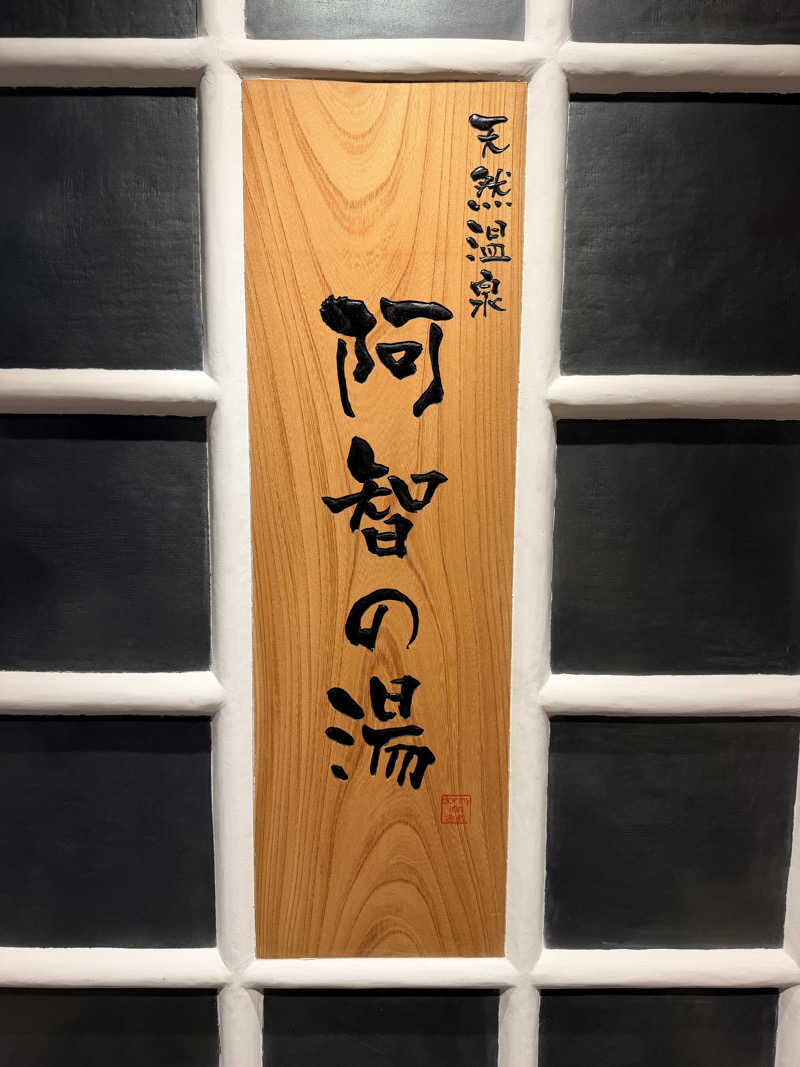 天然温泉
阿智の湯
dormy
inn